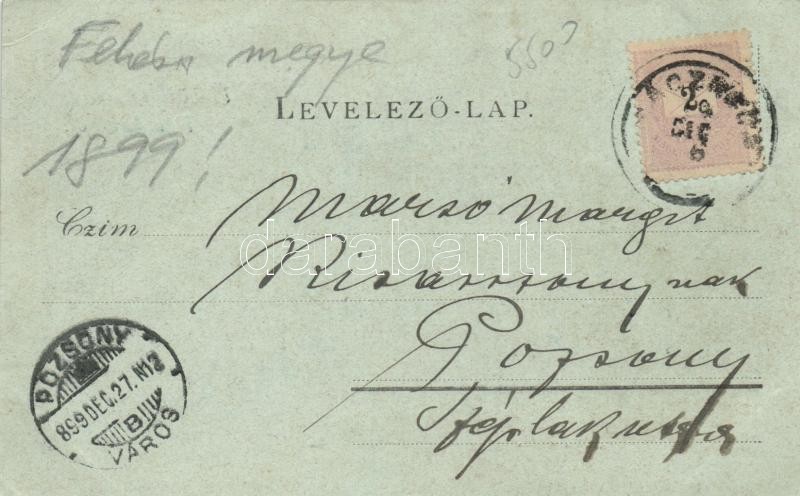 Fehér megye
5507
LEVELEZŐ-LAP.
1899!
Czim
Marsó Margit
Kisasszonynak
Pozsony
Széplak utcza
POZSONY
899 DEC. 27. N12
B
VÁROS
darabanth